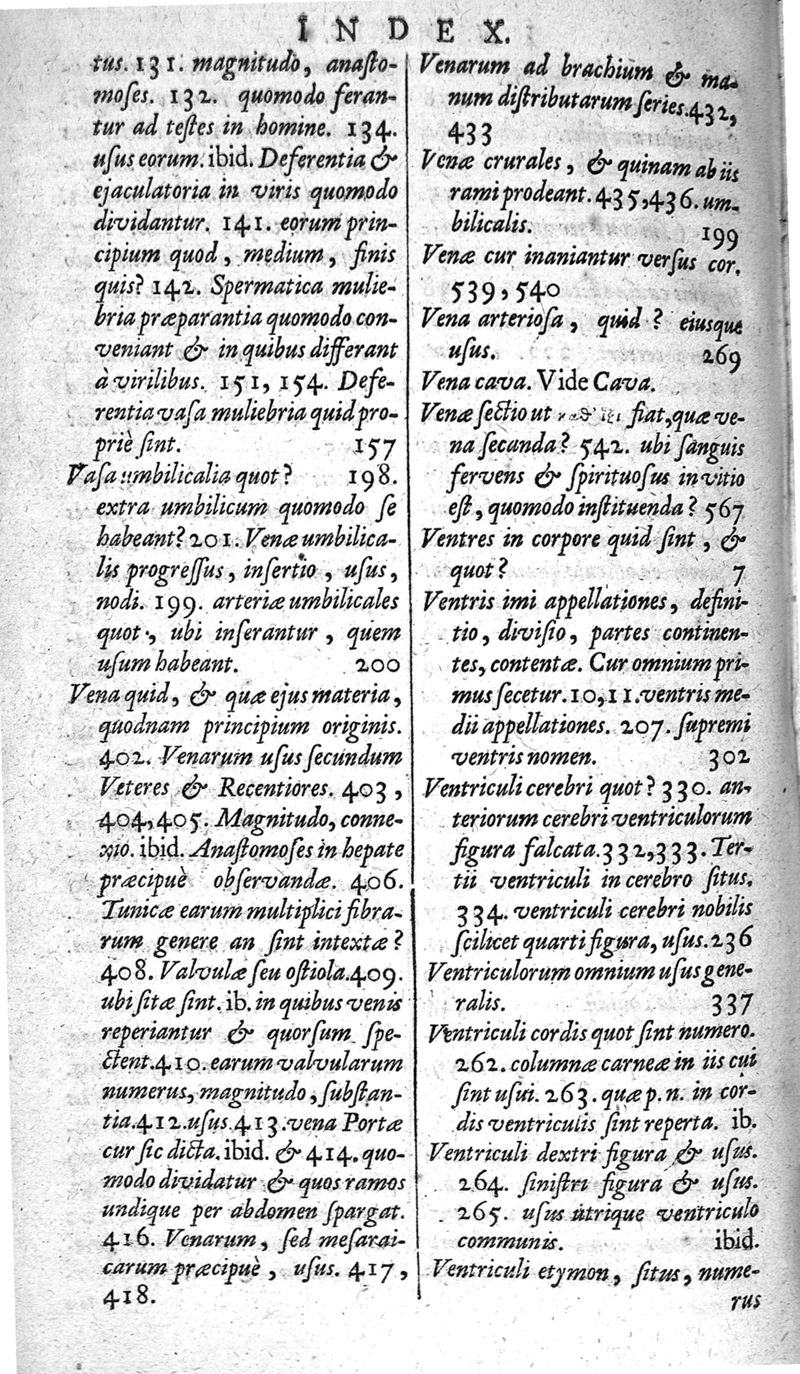 INDEX.
tus. 131. magnitudo, anaſto-
moſes. 132. quomodo feran-
tur ad teſtes in homine. 134.
uſus eorum. ibid. Deferentia &
ejaculatoria in viris quomodo
dividantur. 141. eorum prin-
cipium quod, medium, finis
quis? 142. Spermatica mulie-
bria præparantia quomodo con-
veniant & in quibus differant
à virilibus. 151, 154. Defe-
rentia vaſa muliebria quid pro-
priè ſint. 157
Vaſa umbilicalia quot? 198.
extra umbilicum quomodo ſe
habeant? 201. Venæ umbilica-
lis progreſſus, inſertio, uſus,
nodi. 199. arteriæ umbilicales
quot, ubi inſerantur, quem
uſum habeant. 200
Vena quid, & quæ ejus materia,
quodnam principium originis.
402. Venarum uſus ſecundum
Veteres & Recentiores. 403,
404, 405. Magnitudo, conne-
xio. ibid. Anaſtomoſes in hepate
præcipuè obſervandæ. 406.
Tunicæ earum multiplici fibra-
rum genere an ſint intextæ?
408. Valvulæ ſeu oſtiola. 409.
ubi ſitæ ſint. ib. in quibus venis
reperiantur & quorſum ſpe-
ctent. 410. earum valvularum
numerus, magnitudo, ſubſtan-
tia. 412. uſus. 413. vena Portæ
cur ſic dicta. ibid. & 414. quo-
modo dividatur & quos ramos
undique per abdomen ſpargat.
416. Venarum, ſed meſarai-
carum præcipuè, uſus. 417,
418.
Venarum ad brachium & ma-
num diſtributarum ſeries. 432,
433
Venæ crurales, & quinam ab iis
rami prodeant. 435, 436. um-
bilicalis. 199
Venæ cur inaniantur verſus cor.
539, 540
Vena arterioſa, quid? eiusque
uſus. 269
Vena cava. Vide Cava.
Venæ ſectio ut fiat, quæ ve-
na ſecanda? 542. ubi ſanguis
fervens & ſpirituoſus in vitio
eſt, quomodo inſtituenda? 567
Ventres in corpore quid ſint, &
quot? 7
Ventris imi appellationes, defini-
tio, diviſio, partes continen-
tes, contentæ. Cur omnium pri-
mus ſecetur. 10, 11. ventris me-
dii appellationes. 207. ſupremi
ventris nomen. 302
Ventriculi cerebri quot? 330. an-
teriorum cerebri ventriculorum
figura falcata. 332, 333. Ter-
tii ventriculi in cerebro ſitus.
334. ventriculi cerebri nobilis
ſcilicet quarti figura, uſus. 236
Ventriculorum omnium uſus gene-
ralis. 337
Ventriculi cordis quot ſint numero.
262. columnæ carneæ in iis cui
ſint uſui. 263. quæ p. n. in cor-
dis ventriculis ſint reperta. ib.
Ventriculi dextri figura & uſus.
264. ſiniſtri figura & uſus.
265. uſus utrique ventriculo
communis. ibid.
Ventriculi etymon, ſitus, nume-
rus